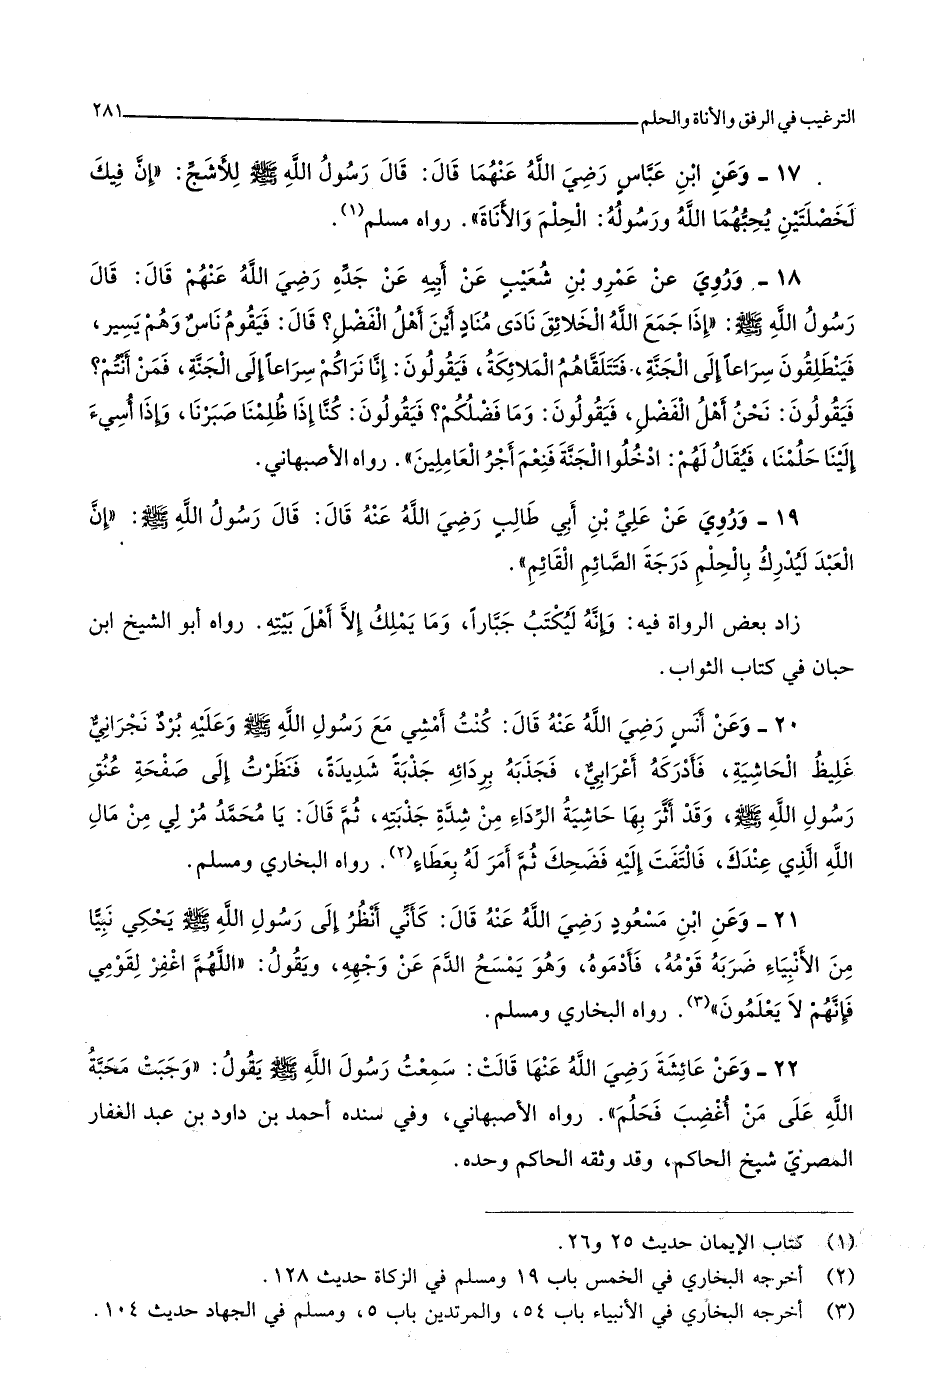 الترغيب في الرفق والأناة والحلم ٢٨١
١٧ ـ وَعَنِ ابْنِ عَبَّاسٍ رَضِيَ اللَّهُ عَنْهُمَا قَالَ: قَالَ رَسُولُ اللَّهِ ﷺ لِلأَشَجِّ: «إِنَّ فِيكَ
لَخَصْلَتَيْنِ يُحِبُّهُمَا اللَّهُ ورَسُولُهُ: الْحِلْمَ وَالأَنَاةَ». رواه مسلم(١).
١٨ ـ وَرُوِيَ عنْ عَمْرِو بْنِ شُعَيْبٍ عَنْ أَبِيهِ عَنْ جَدِّهِ رَضِيَ اللَّهُ عَنْهُمْ قَالَ: قَالَ
رَسُولُ اللَّهِ ﷺ: «إِذَا جَمَعَ اللَّهُ الْخَلائِقَ نَادَى مُنَادٍ أَيْنَ أَهْلُ الْفَضْلِ؟ قَالَ: فَيَقُومُ نَاسٌ وَهُمْ يَسِير،
فَيَنْطَلِقُونَ سِرَاعاً إِلَى الْجَنَّةِ، فَتَتَلَقَّاهُمُ الْمَلائِكَةُ، فَيَقُولُونَ: إِنَّا نَرَاكُمْ سِرَاعاً إِلَى الْجَنَّةِ، فَمَنْ أَنْتُمْ؟
فَيَقُولُونَ: نَحْنُ أَهْلُ الْفَضْلِ، فَيَقُولُونَ: وَمَا فَضْلُكُمْ؟ فَيَقُولُونَ: كُنَّا إِذَا ظُلِمْنَا صَبَرْنَا، وَإِذَا أُسِيءَ
إِلَيْنَا حَلُمْنَا، فَيُقَالُ لَهُمْ: ادْخُلُوا الْجَنَّةَ فَنِعْمَ أَجْرُ الْعَامِلِينَ». رواه الأصبهاني.
١٩ ـ وَرُوِيَ عَنْ عَلِيِّ بْنِ أَبِي طَالِبٍ رَضِيَ اللَّهُ عَنْهُ قَالَ: قَالَ رَسُولُ اللَّهِ ﷺ: «إِنَّ
الْعَبْدَ لَيُدْرِكُ بِالْحِلْمِ دَرَجَةَ الصَّائِمِ الْقَائِمِ».
زاد بعض الرواة فيه: وَإِنَّهُ لَيُكْتَبُ جَبَّاراً، وَمَا يَمْلِكُ إِلاَّ أَهْلَ بَيْتِهِ. رواه أبو الشيخ ابن
حبان في كتاب الثواب.
٢٠ ـ وَعَنْ أَنَسٍ رَضِيَ اللَّهُ عَنْهُ قَالَ: كُنْتُ أَمْشِي مَعَ رَسُولِ اللَّهِ ﷺ وَعَلَيْهِ بُرْدٌ نَجْرَانِيٌّ
غَلِيظُ الْحَاشِيَةِ، فَأَدْرَكَهُ أَعْرَابِيٌّ، فَجَذَبَهُ بِرِدَائِهِ جَذْبَةً شَدِيدَةً، فَنَظَرْتُ إِلَى صَفْحَةِ عُنُقِ
رَسُولِ اللَّهِ ﷺ، وَقَدْ أَثَّرَ بِهَا حَاشِيَةُ الرِّدَاءِ مِنْ شِدَّةِ جَذْبَتِهِ، ثُمَّ قَالَ: يَا مُحَمَّدُ مُرْ لِي مِنْ مَالِ
اللَّهِ الَّذِي عِنْدَكَ، فَالْتَفَتَ إِلَيْهِ فَضَحِكَ ثُمَّ أَمَرَ لَهُ بِعَطَاءٍ(٢). رواه البخاري ومسلم.
٢١ ـ وَعَنِ ابْنِ مَسْعُودٍ رَضِيَ اللَّهُ عَنْهُ قَالَ: كَأَنِّي أَنْظُرُ إِلَى رَسُولِ اللَّهِ ﷺ يَحْكِي نَبِيًّا
مِنَ الأَنْبِيَاءِ ضَرَبَهُ قَوْمُهُ، فَأَدْمَوهُ، وَهُوَ يَمْسَحُ الدَّمَ عَنْ وَجْهِهِ، ويَقُولُ: «اللَّهُمَّ اغْفِرْ لِقَوْمِي
فَإِنَّهُمْ لاَ يَعْلَمُونَ»(٣). رواه البخاري ومسلم.
٢٢ ـ وَعَنْ عَائِشَةَ رَضِيَ اللَّهُ عَنْهَا قَالَتْ: سَمِعْتُ رَسُولَ اللَّهِ ﷺ يَقُولُ: «وَجَبَتْ مَحَبَّةُ
اللَّهِ عَلَى مَنْ أُغْضِبَ فَحَلُمَ». رواه الأصبهاني، وفي سنده أحمد بن داود بن عبد الغفار
المصريّ شيخ الحاكم، وقد وثقه الحاكم وحده.
(١) كتاب الإيمان حديث ٢٥ و٢٦.
(٢) أخرجه البخاري في الخمس باب ١٩ ومسلم في الزكاة حديث ١٢٨.
(٣) أخرجه البخاري في الأنبياء باب ٥٤، والمرتدين باب ٥، ومسلم في الجهاد حديث ١٠٤.